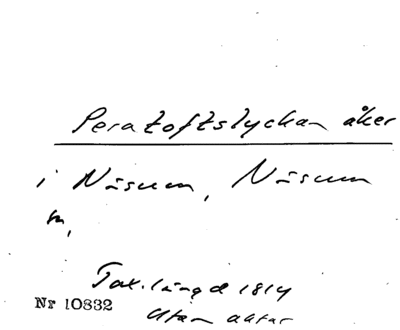 Peratoftslyckan åker
i Näsum, Näsum
sn,
Tax.längd 1814
Nr 10832
Utan aktnr